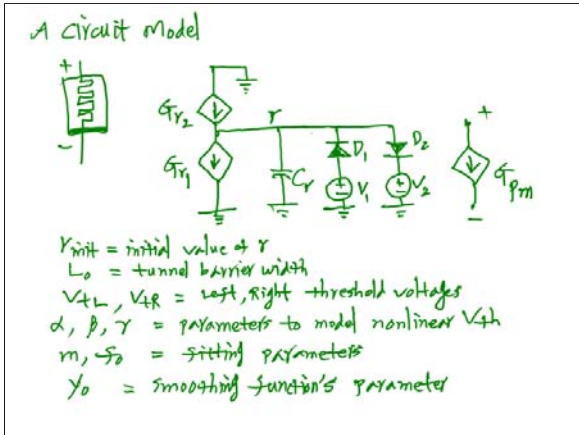 A Circuit Model
+
-
Gr2
r
Gr1
Cr
D1
V1
D2
V2
+
Gpm
-
rinit = initial value of r
Lo = tunnel barrier width
VtL, VtR = Left, Right threshold voltages
α, β, γ = parameters to model nonlinear Vth
m, fo = fitting parameters
yo = smoothing function's parameter